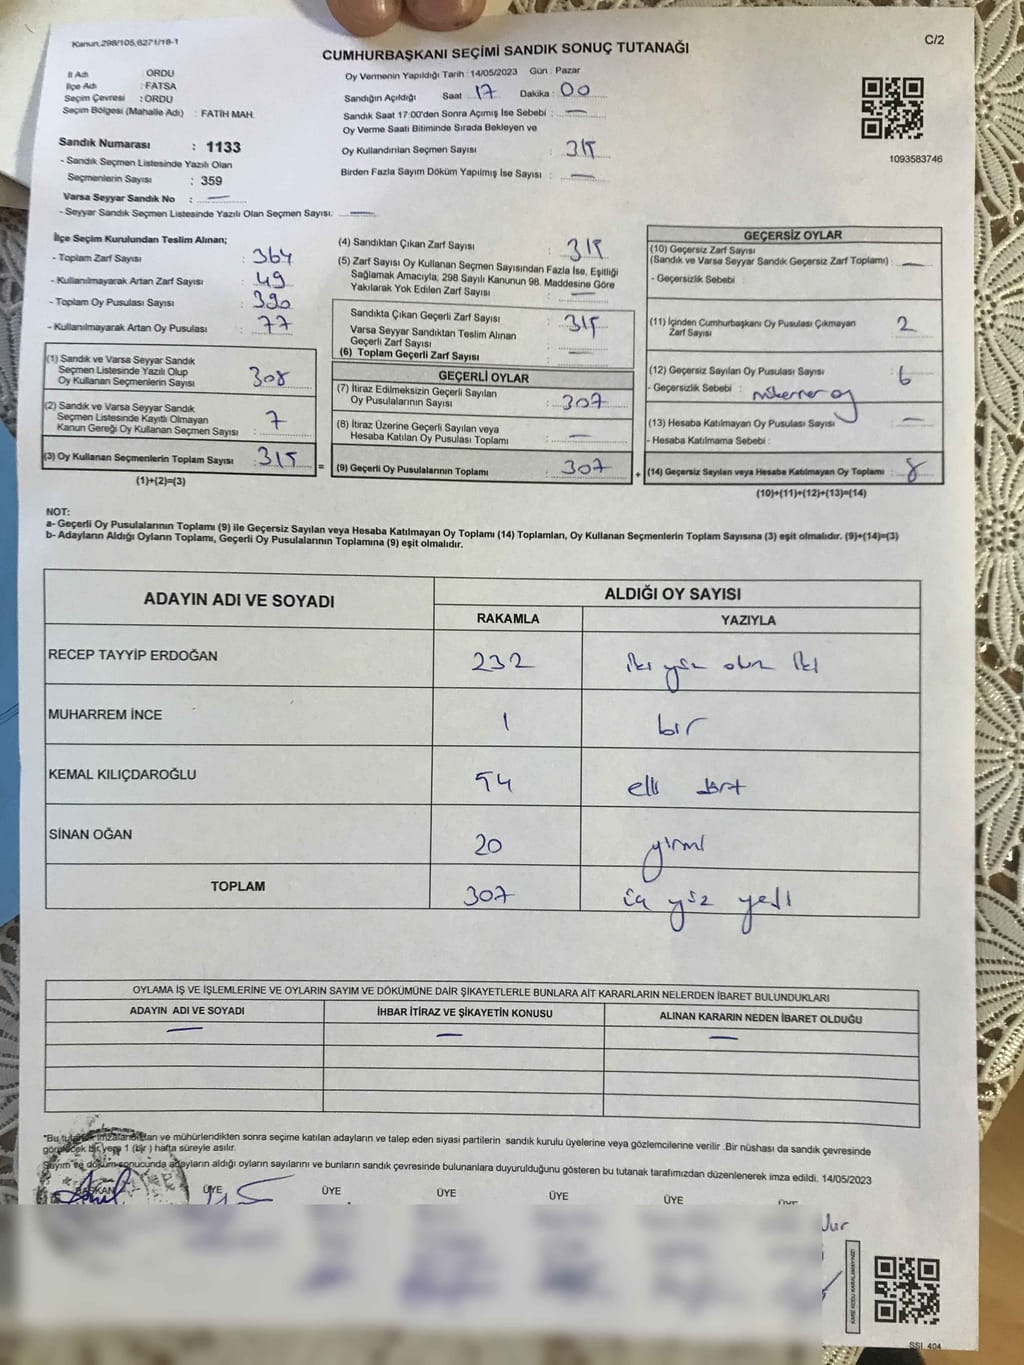 Kanun,298/105,6271/18-1
C/2
CUMHURBAŞKANI SEÇİMİ SANDIK SONUÇ TUTANAĞI
İl Adı : ORDU
İlçe Adı : FATSA
Seçim Çevresi : ORDU
Seçim Bölgesi (Mahalle Adı) : FATİH MAH.
Sandık Numarası : 1133
- Sandık Seçmen Listesinde Yazılı Olan
Seçmenlerin Sayısı : 359
Varsa Seyyar Sandık No : —
- Seyyar Sandık Seçmen Listesinde Yazılı Olan Seçmen Sayısı: —
Oy Vermenin Yapıldığı Tarih : 14/05/2023 Gün : Pazar
Sandığın Açıldığı Saat 17 Dakika : 00
Sandık Saat 17:00'den Sonra Açımış İse Sebebi : —
Oy Verme Saati Bitiminde Sırada Bekleyen ve
Oy Kullandırılan Seçmen Sayısı : 315
Birden Fazla Sayım Döküm Yapılmış İse Sayısı : —
1093583746
İlçe Seçim Kurulundan Teslim Alınan;
- Toplam Zarf Sayısı : 364
- Kullanılmayarak Artan Zarf Sayısı : 49
- Toplam Oy Pusulası Sayısı : 390
- Kullanılmayarak Artan Oy Pusulası : 77
(1) Sandık ve Varsa Seyyar Sandık
Seçmen Listesinde Yazılı Olup
Oy Kullanan Seçmenlerin Sayısı : 308
(2) Sandık ve Varsa Seyyar Sandık
Seçmen Listesinde Kayıtlı Olmayan
Kanun Gereği Oy Kullanan Seçmen Sayısı : 7
(3) Oy Kullanan Seçmenlerin Toplam Sayısı : 315 =
(1)+(2)=(3)
(4) Sandıktan Çıkan Zarf Sayısı : 315
(5) Zarf Sayısı Oy Kullanan Seçmen Sayısından Fazla İse, Eşitliği
Sağlamak Amacıyla; 298 Sayılı Kanunun 98. Maddesine Göre
Yakılarak Yok Edilen Zarf Sayısı : —
Sandıkta Çıkan Geçerli Zarf Sayısı : 315
Varsa Seyyar Sandıktan Teslim Alınan
Geçerli Zarf Sayısı : —
(6) Toplam Geçerli Zarf Sayısı :
GEÇERLİ OYLAR
(7) İtiraz Edilmeksizin Geçerli Sayılan
Oy Pusulalarının Sayısı : 307
(8) İtiraz Üzerine Geçerli Sayılan veya
Hesaba Katılan Oy Pusulası Toplamı : —
(9) Geçerli Oy Pusulalarının Toplamı : 307 +
GEÇERSİZ OYLAR
(10) Geçersiz Zarf Sayısı
(Sandık ve Varsa Seyyar Sandık Geçersiz Zarf Toplamı) : —
- Geçersizlik Sebebi :
(11) İçinden Cumhurbaşkanı Oy Pusulası Çıkmayan
Zarf Sayısı : 2
(12) Geçersiz Sayılan Oy Pusulası Sayısı : 6
- Geçersizlik Sebebi : mükerrer oy
(13) Hesaba Katılmayan Oy Pusulası Sayısı : —
- Hesaba Katılmama Sebebi :
(14) Geçersiz Sayılan veya Hesaba Katılmayan Oy Toplamı : 8
(10)+(11)+(12)+(13)=(14)
NOT:
a- Geçerli Oy Pusulalarının Toplamı (9) ile Geçersiz Sayılan veya Hesaba Katılmayan Oy Toplamı (14) Toplamları, Oy Kullanan Seçmenlerin Toplam Sayısına (3) eşit olmalıdır. (9)+(14)=(3)
b- Adayların Aldığı Oyların Toplamı, Geçerli Oy Pusulalarının Toplamına (9) eşit olmalıdır.
ADAYIN ADI VE SOYADI
ALDIĞI OY SAYISI
RAKAMLA YAZIYLA
RECEP TAYYİP ERDOĞAN 232 iki yüz otuz iki
MUHARREM İNCE 1 bir
KEMAL KILIÇDAROĞLU 54 elli dört
SİNAN OĞAN 20 yirmi
TOPLAM 307 üç yüz yedi
OYLAMA İŞ VE İŞLEMLERİNE VE OYLARIN SAYIM VE DÖKÜMÜNE DAİR ŞİKAYETLERLE BUNLARA AİT KARARLARIN NELERDEN İBARET BULUNDUKLARI
ADAYIN ADI VE SOYADI İHBAR İTİRAZ VE ŞİKAYETİN KONUSU ALINAN KARARIN NEDEN İBARET OLDUĞU
— — —
"Bu tutanak imzalandıktan ve mühürlendikten sonra seçime katılan adayların ve talep eden siyasi partilerin sandık kurulu üyelerine veya gözlemcilerine verilir .Bir nüshası da sandık çevresinde
görülecek bir yere 1 (bir ) hafta süreyle asılır.
Sayım ve döküm sonucunda adayların aldığı oyların sayılarını ve bunların sandık çevresinde bulunanlara duyurulduğunu gösteren bu tutanak tarafımızdan düzenlenerek imza edildi. 14/05/2023
BAŞKAN ÜYE ÜYE ÜYE ÜYE ÜYE ÜYE
KARE KODU KARALAMAYINIZ!
SSI_404